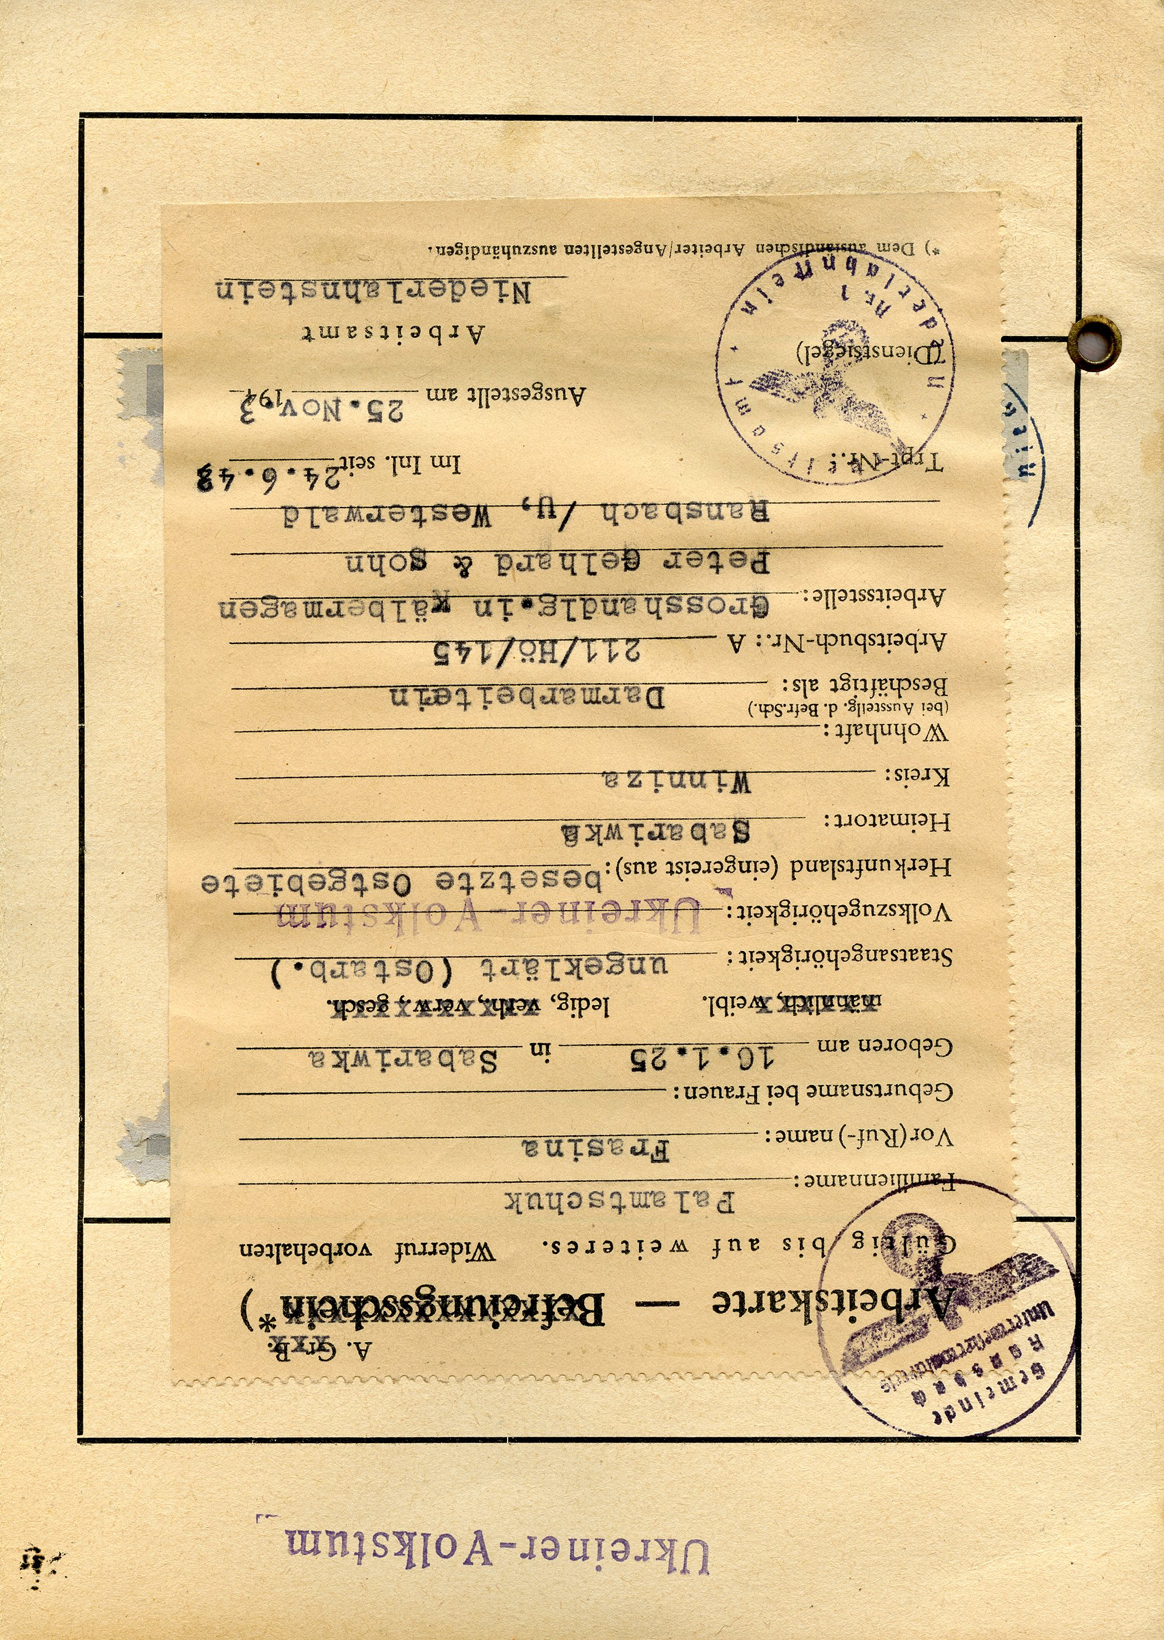 Ukreiner-Volkstum
Gemeinde
Ransbach
Unterwesterwaldkreis
A. Gr. B.
Arbeitskarte — Befreiungsschein *)
Gültig bis auf weiteres. Widerruf vorbehalten
Familienname: Palamtschuk
Vor(Ruf-)name: Frasina
Geburtsname bei Frauen:
Geboren am 10.1.25 in Sabariwka
männlich, weibl. ledig, verh., verw., gesch.
Staatsangehörigkeit: ungeklärt (Ostarb.)
Volkszugehörigkeit: Ukreiner-Volkstum
Herkunftsland (eingereist aus): besetzte Ostgebiete
Heimatort: Sabariwka
Kreis: Winniza
Wohnhaft:
(bei Ausstellg. d. Befr.Sch.)
Beschäftigt als: Darmarbeiterin
Arbeitsbuch-Nr.: A 211/Hö/145
Arbeitsstelle: Grosshandlg.in Kälbermagen
Peter Gelhard & Sohn
Ransbach /U, Westerwald
Trpt-Nr.: Im Inl. seit 24.6.43
Ausgestellt am 25.Nov.3 194
(Dienstsiegel)
Arbeitsamt
Niederlahnstein
Arbeitsamt Niederlahnstein
Nr. 1
*) Dem ausländischen Arbeiter/Angestellten auszuhändigen.